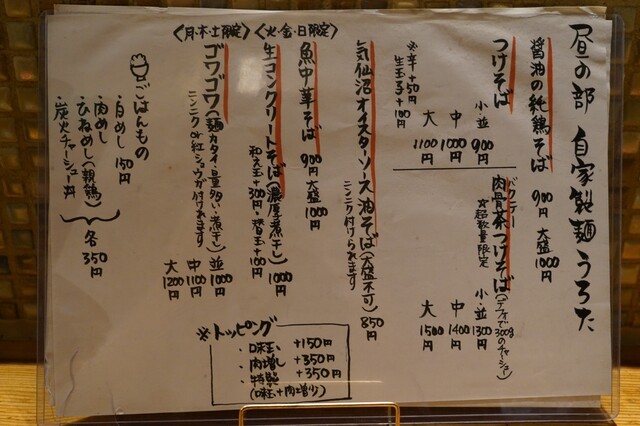 昼の部 自家製麺うろた
醤油の純鶏そば 900円 大盛1000円
つけそば
小・並 900円
中 1000円
大 1100円
※辛+50円
生玉子+100円
バクテー
肉骨茶つけそば(デフォで300gのチャーシュー)
☆超数量限定
小・並 1300円
中 1400円
大 1500円
気仙沼オイスターソース油そば(大盛不可) 850円
ニンニク付けられます
〈火・金・日限定〉
魚中華そば 900円 大盛1000円
生コンクリートそば(濃厚煮干し) 1000円
和え玉+300円・替玉+100円
〈月・木・土限定〉
ゴワゴワ(麺カタイ・量多い・煮干し)
ニンニクor紅ショウガ付けれます
並 1000円
中 1100円
大 1200円
ごはんもの
・白めし 150円
・肉めし
・ひねめし(親鶏)
・炭火チャーシュー丼
各350円
※トッピング
・味玉 +150円
・肉増し +350円
・特製 +350円
(味玉+肉増少)